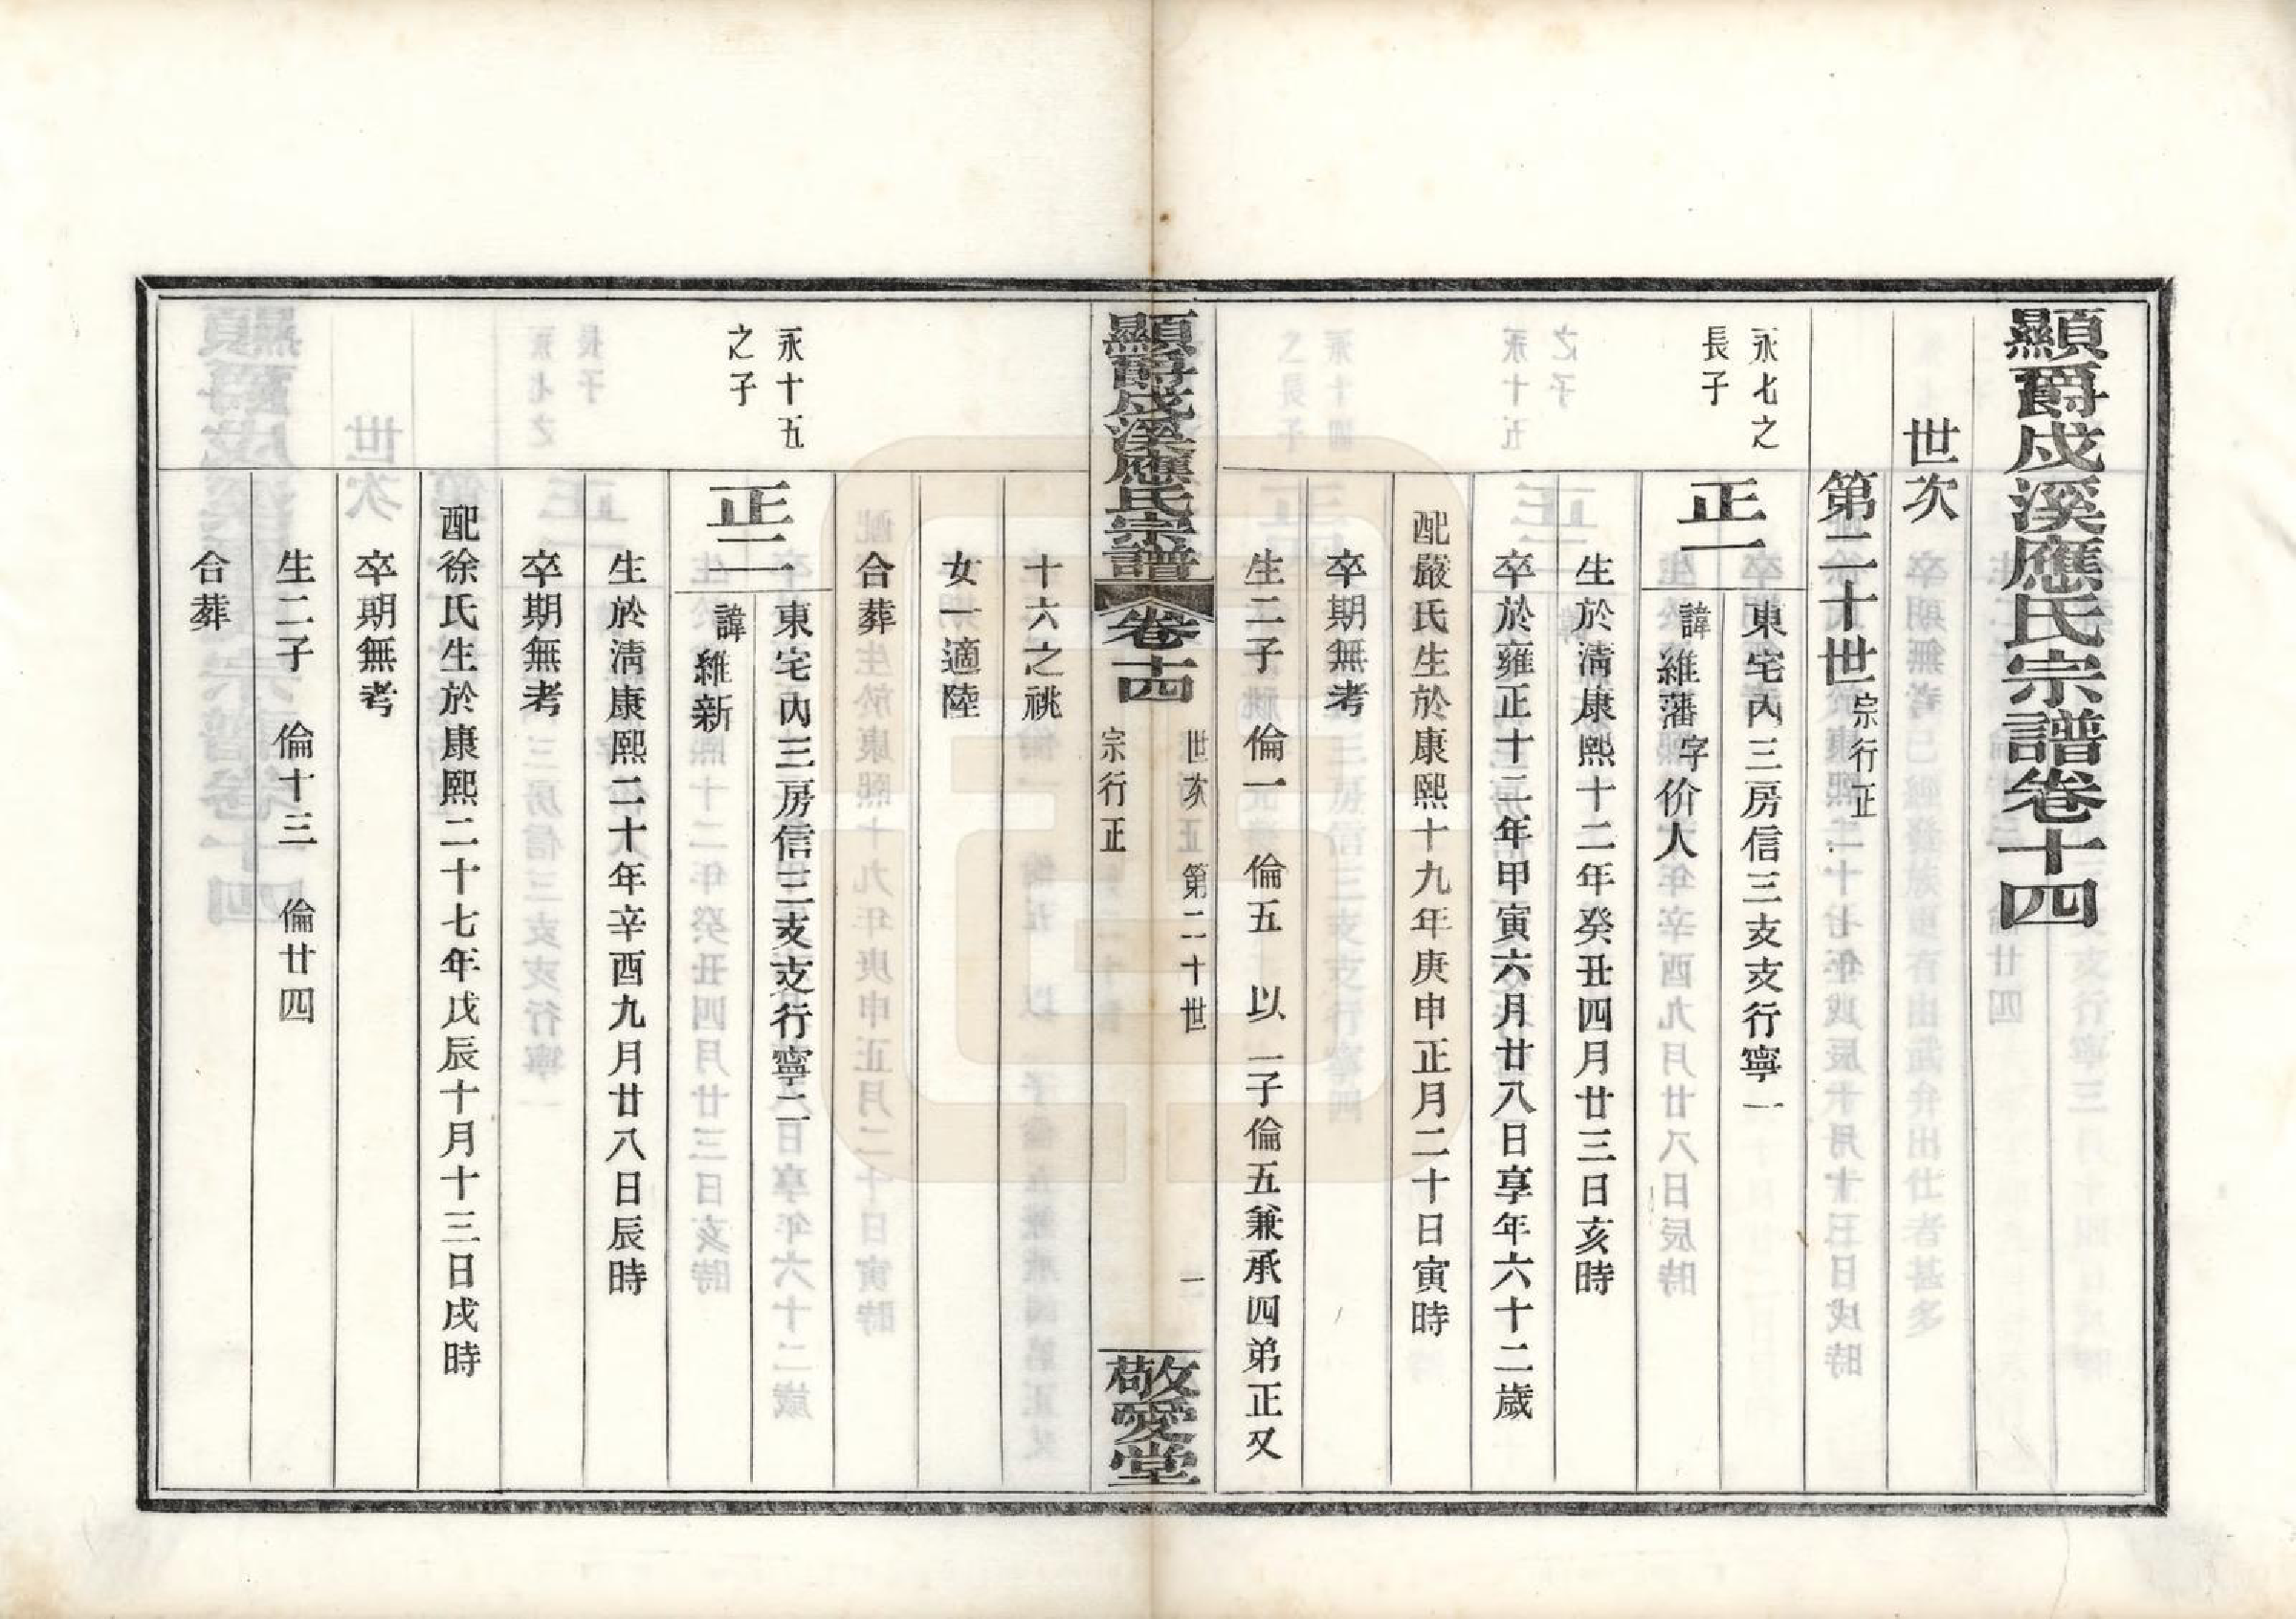 顯爵戍溪應氏宗譜卷十四
世次
第二十世宗行正
永七之
長子
正一
東宅內三房信三支支行寧一
諱維藩字价人
生於清康熙十二年癸丑四月廿三日亥時
卒於雍正十二年甲寅六月廿八日享年六十二歲
配嚴氏生於康熙十九年庚申正月二十日寅時
卒期無考
生二子 倫一 倫五 以一子倫五兼承四弟正又
顯爵戍溪應氏宗譜
卷十四
世次 第二十世
宗行正
一
敬愛堂
十六之祧
女一適陸
合葬
永十五
之子
正二
東宅內三房信三支支行寧二
諱維新
生於清康熙二十年辛酉九月廿八日辰時
卒期無考
配徐氏生於康熙二十七年戊辰十月十三日戌時
卒期無考
生二子 倫十三 倫廿四
合葬